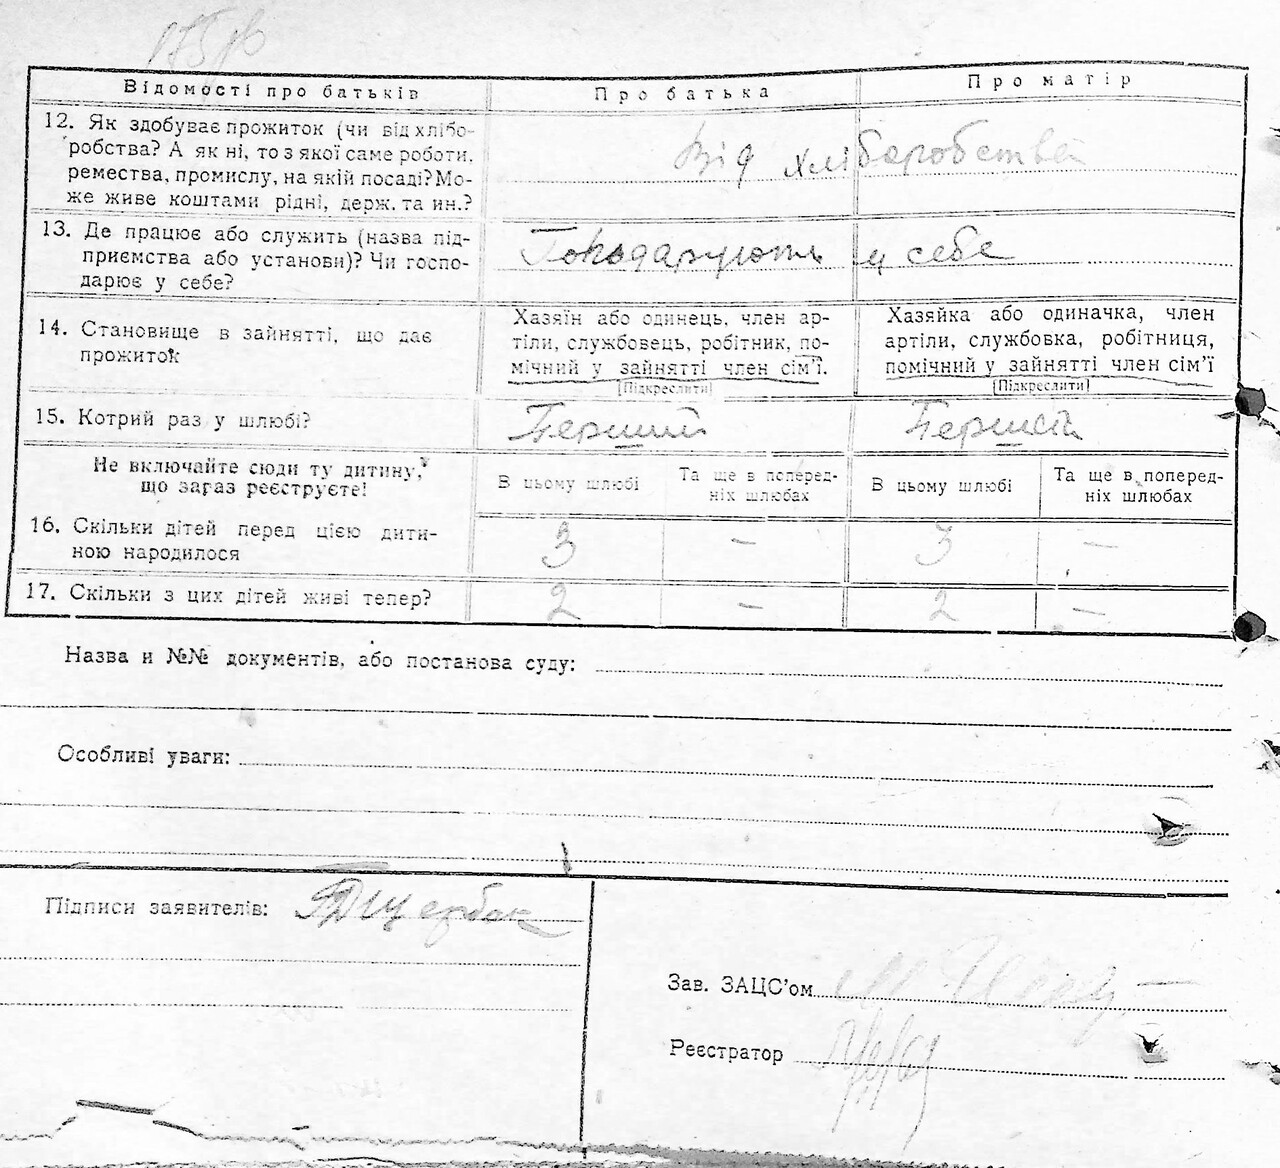 175 зв
Відомості про батьків
Про батька
Про матір
12. Як здобуває прожиток (чи від хлібо-
робства? А як ні, то з якої саме роботи,
ремества, промислу, на якій посаді? Мо-
же живе коштами рідні, держ. та ин.?
Від хліборобства
13. Де працює або служить (назва під-
приємства або установи)? Чи госпо-
дарює у себе?
Господарують у себе
14. Становище в зайнятті, що дає
прожиток
Хазяїн або одинець, член ар-
тіли, службовець, робітник, по-
мічний у зайнятті член сім'ї.
[Підкреслити]
Хазяйка або одиначка, член
артіли, службовка, робітниця,
помічний у зайнятті член сім'ї
[Підкреслити]
15. Котрий раз у шлюбі?
Перший
Перший
Не включайте сюди ту дитину,
що зараз реєструєте!
В цьому шлюбі
Та ще в поперед-
ніх шлюбах
В цьому шлюбі
Та ще в поперед-
ніх шлюбах
16. Скільки дітей перед цією дити-
ною народилося
3
—
3
—
17. Скільки з цих дітей живі тепер?
2
—
2
—
Назва и №№ документів, або постанова суду:
Особливі уваги:
Підписи заявителів: Щербак
Зав. ЗАЦС'ом
Реєстратор